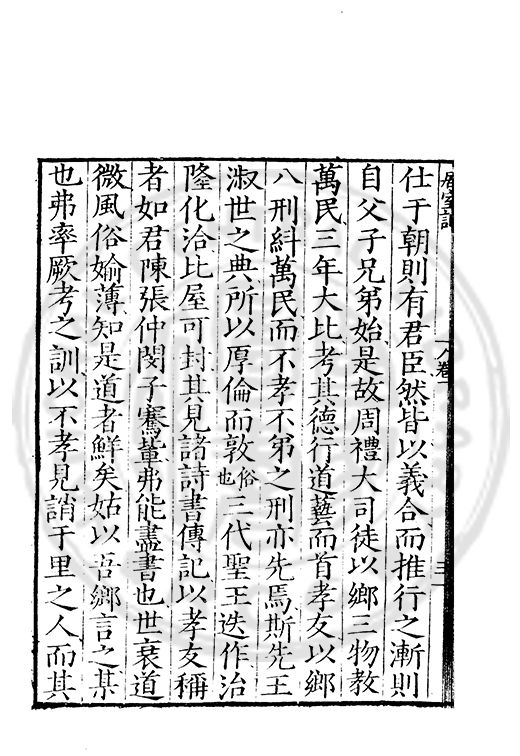 仕于朝則有君臣然皆以義合而推行之漸則
自父子兄弟始是故周禮大司徒以鄉三物教
萬民三年大比考其德行道藝而首孝友以鄉
八刑糾萬民而不孝不弟之刑亦先焉斯先王
淑世之典所以厚倫而敦俗也三代聖王迭作治
隆化洽比屋可封其見諸詩書傳記以孝友稱
者如君陳張仲閔子騫輩弗能盡書也世衰道
微風俗媮薄知是道者鮮矣姑以吾鄉言之某
也弗率厥考之訓以不孝見誚于里之人而其